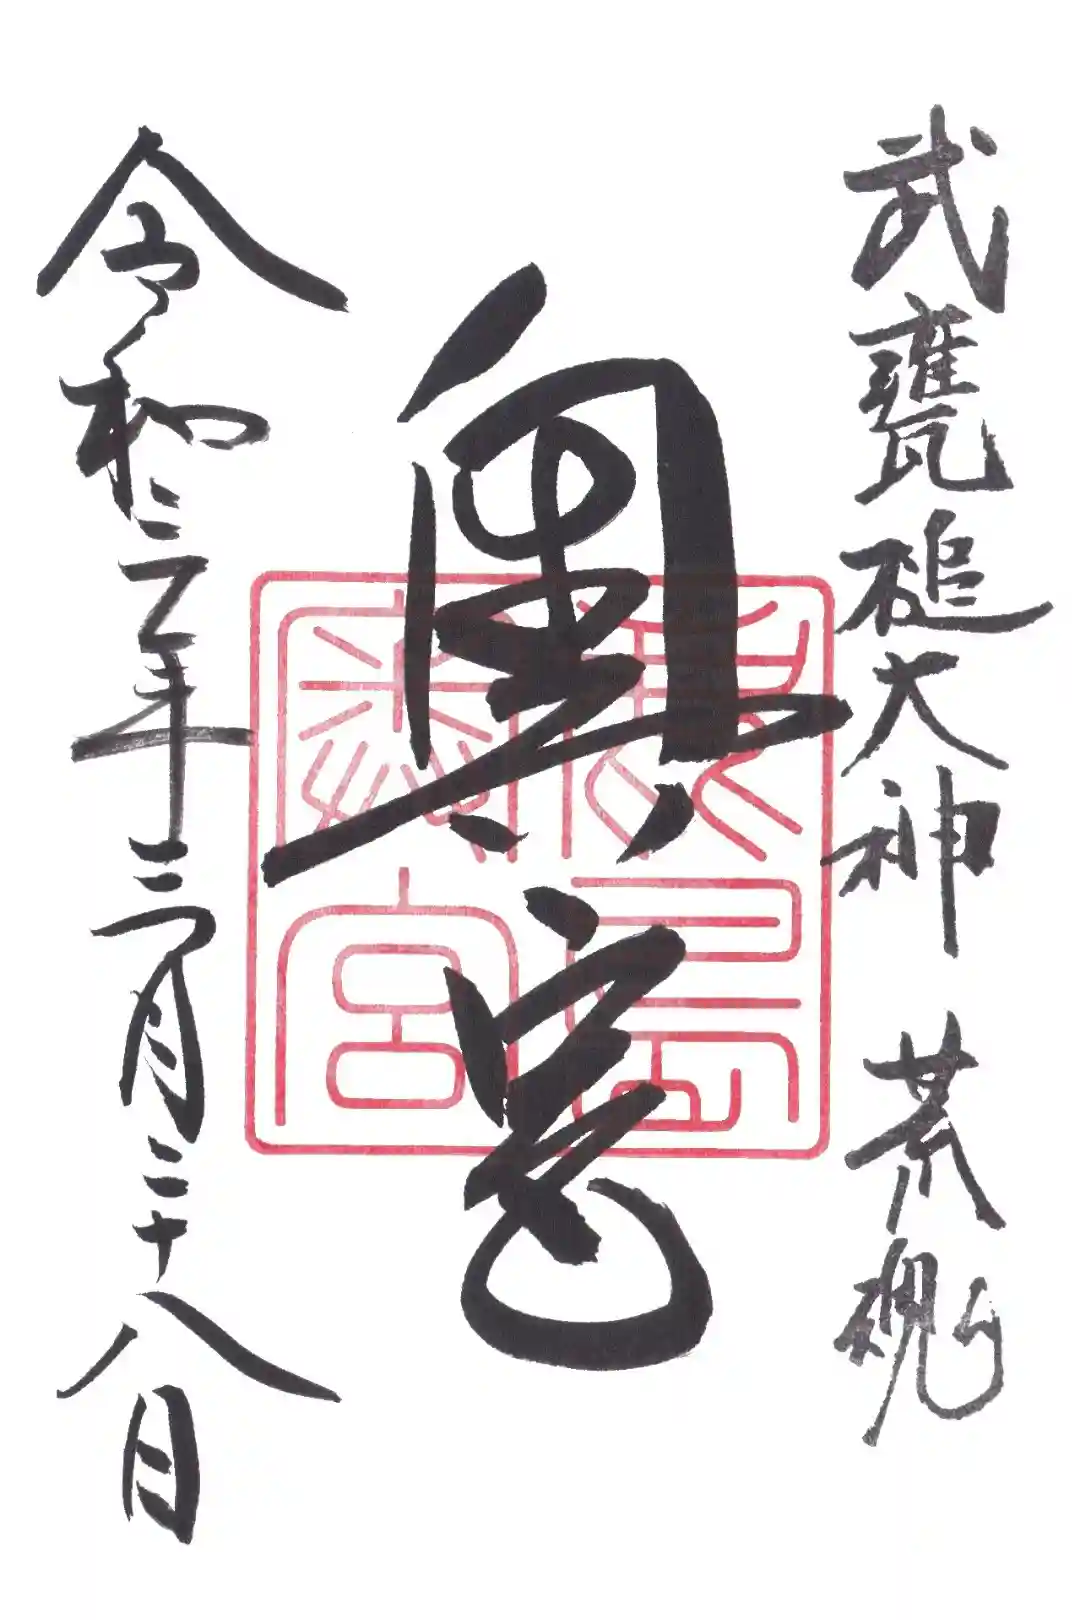 武甕槌大神 荒魂
奥宮
鹿島
奥宮
令和三年三月二十八日